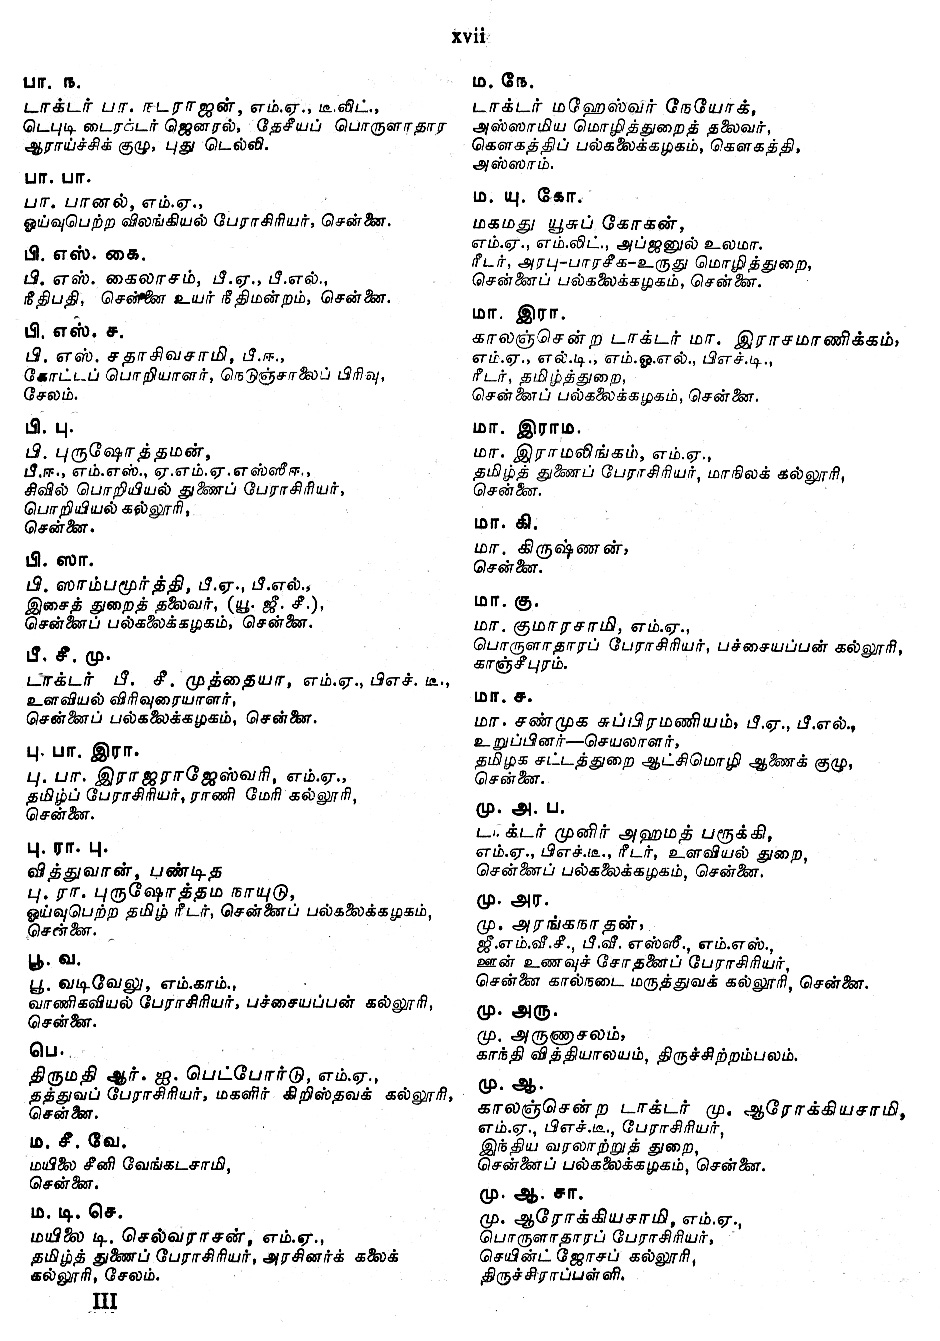 xvii
பா. ந.
டாக்டர் பா. நடராஜன், எம்.ஏ., டீ.லிட்.,
டெபுடி டைரக்டர் ஜெனரல், தேசீயப் பொருளாதார
ஆராய்ச்சிக் குழு, புது டெல்லி.
பா. பா.
பா. பானல், எம்.ஏ.,
ஓய்வுபெற்ற விலங்கியல் பேராசிரியர், சென்னை.
பி. எஸ். கை.
பி. எஸ். கைலாசம், பீ.ஏ., பீ.எல்.,
நீதிபதி, சென்னை உயர் நீதிமன்றம், சென்னை.
பி. எஸ். ச.
பி. எஸ். சதாசிவசாமி, பீ.ஈ.,
கோட்டப் பொறியாளர், நெடுஞ்சாலைப் பிரிவு,
சேலம்.
பி. பு.
பி. புருஷோத்தமன்,
பீ.ஈ., எம்.எஸ்., ஏ.எம்.ஏ.எஸ்ஸீஈ.,
சிவில் பொறியியல் துணைப் பேராசிரியர்,
பொறியியல் கல்லூரி,
சென்னை.
பி. ஸா.
பி. ஸாம்பமூர்த்தி, பீ.ஏ., பீ.எல்.,
இசைத் துறைத் தலைவர், (யூ. ஜீ. சீ.),
சென்னைப் பல்கலைக்கழகம், சென்னை.
பீ. சீ. மு.
டாக்டர் பீ. சீ. முத்தையா, எம்.ஏ., பிஎச். டீ.,
உளவியல் விரிவுரையாளர்,
சென்னைப் பல்கலைக்கழகம், சென்னை.
பு. பா. இரா.
பு. பா. இராஜராஜேஸ்வரி, எம்.ஏ.,
தமிழ்ப் பேராசிரியர், ராணி மேரி கல்லூரி,
சென்னை.
பு. ரா. பு.
வித்துவான், பண்டித
பு. ரா. புருஷோத்தம நாயுடு,
ஓய்வுபெற்ற தமிழ் ரீடர், சென்னைப் பல்கலைக்கழகம்,
சென்னை.
பூ. வ.
பூ. வடிவேலு, எம்.காம்.,
வாணிகவியல் பேராசிரியர், பச்சையப்பன் கல்லூரி,
சென்னை.
பெ.
திருமதி ஆர். ஐ. பெட்போர்டு, எம்.ஏ.,
தத்துவப் பேராசிரியர், மகளிர் கிறிஸ்தவக் கல்லூரி,
சென்னை.
ம. சீ. வே.
மயிலை சீனி வேங்கடசாமி,
சென்னை.
ம. டி. செ.
மயிலை டி. செல்வராசன், எம்.ஏ.,
தமிழ்த் துணைப் பேராசிரியர், அரசினர்க் கலைக்
கல்லூரி, சேலம்.
III
ம. நே.
டாக்டர் மஹேஸ்வர் நேயோக்,
அஸ்ஸாமிய மொழித்துறைத் தலைவர்,
கௌகத்திப் பல்கலைக்கழகம், கௌகத்தி,
அஸ்ஸாம்.
ம. யு. கோ.
மகமது யூசுப் கோகன்,
எம்.ஏ., எம்.லிட்., அப்ஜனுல் உலமா.
ரீடர், அரபு-பாரசீக-உருது மொழித்துறை,
சென்னைப் பல்கலைக்கழகம், சென்னை.
மா. இரா.
காலஞ்சென்ற டாக்டர் மா. இராசமாணிக்கம்,
எம்.ஏ., எல்.டி., எம்.ஓ.எல்., பிஎச்.டி.,
ரீடர், தமிழ்த்துறை,
சென்னைப் பல்கலைக்கழகம், சென்னை.
மா. இராம.
மா. இராமலிங்கம், எம்.ஏ.,
தமிழ்த் துணைப் பேராசிரியர், மாநிலக் கல்லூரி,
சென்னை.
மா. கி.
மா. கிருஷ்ணன்,
சென்னை.
மா. கு.
மா. குமாரசாமி, எம்.ஏ.,
பொருளாதாரப் பேராசிரியர், பச்சையப்பன் கல்லூரி,
காஞ்சீபுரம்.
மா. ச.
மா. சண்முக சுப்பிரமணியம், பீ.ஏ., பீ.எல்.,
உறுப்பினர்—செயலாளர்,
தமிழக சட்டத்துறை ஆட்சிமொழி ஆணைக் குழு,
சென்னை.
மு. அ. ப.
டாக்டர் முனிர் அஹமத் பரூக்கி,
எம்.ஏ., பிஎச்.டீ., ரீடர், உளவியல் துறை,
சென்னைப் பல்கலைக்கழகம், சென்னை.
மு. அர.
மு. அரங்கநாதன்,
ஜீ.எம்.வீ.சீ., பீ.வீ. எஸ்ஸீ., எம்.எஸ்.,
ஊன் உணவுச் சோதனைப் பேராசிரியர்,
சென்னை கால்நடை மருத்துவக் கல்லூரி, சென்னை.
மு. அரு.
மு. அருணாசலம்,
காந்தி வித்தியாலயம், திருச்சிற்றம்பலம்.
மு. ஆ.
காலஞ்சென்ற டாக்டர் மு. ஆரோக்கியசாமி,
எம்.ஏ., பிஎச்.டீ., பேராசிரியர்,
இந்திய வரலாற்றுத் துறை,
சென்னைப் பல்கலைக்கழகம், சென்னை.
மு. ஆ. சா.
மு. ஆரோக்கியசாமி, எம்.ஏ.,
பொருளாதாரப் பேராசிரியர்,
செயின்ட் ஜோசப் கல்லூரி,
திருச்சிராப்பள்ளி.